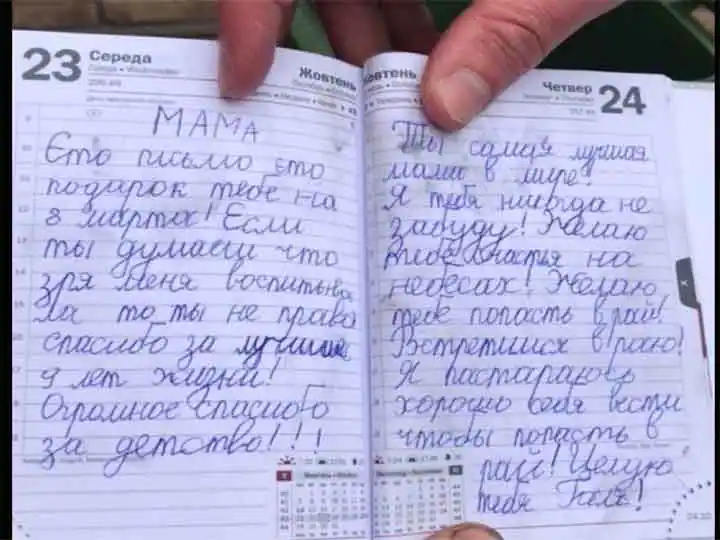 23 Середа
Жовтень
МАМА
Єто письмо єто
подарок тебе на
8 марта! Если
ты думаеш что
зря меня воспитыва
ла то ты не права
спасибо за лучшие
9 лет жизни!
Огромное спасибо
за детство!!!
Жовтень
Четвер 24
Ты самая лучшая
мама в мире!
Я тебя никогда не
забуду! Желаю
тебе счастья на
небесах! Желаю
тебе попасть в рай!
Встретимся в раю!
Я пастараюсь
хорошо себя вести
чтобы попасть в
рай! Целую
тебя